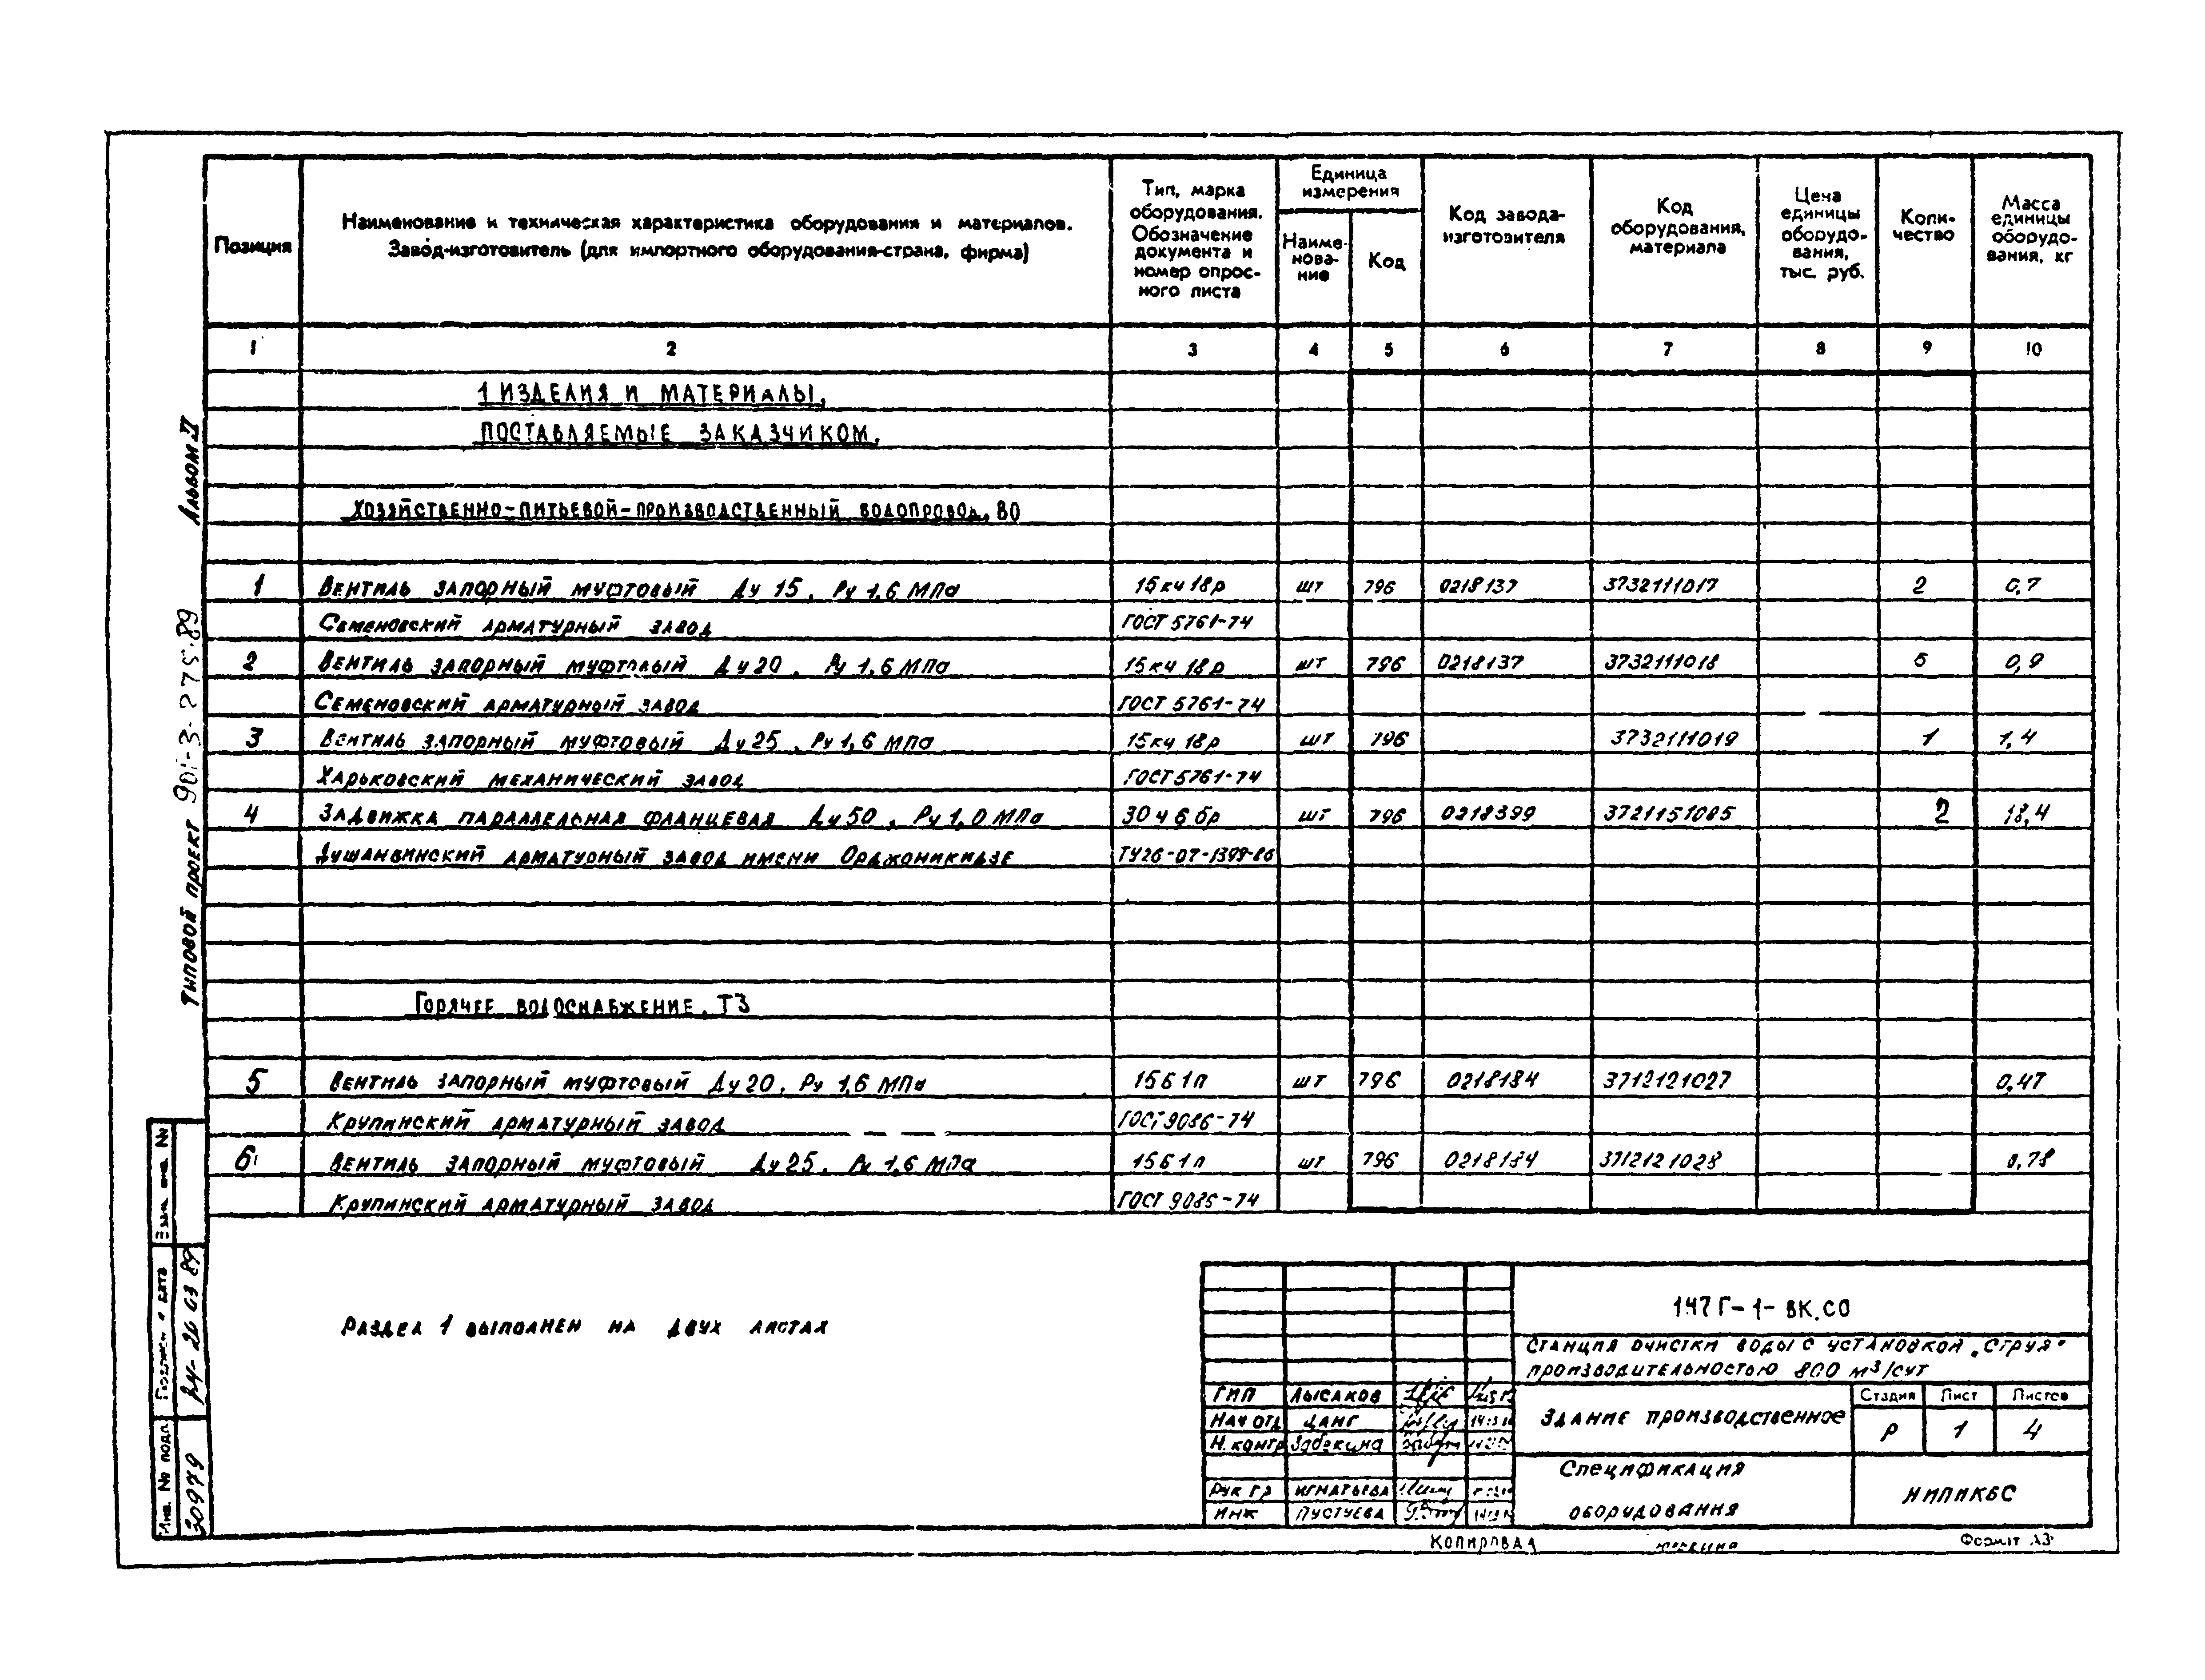 Альбом V
Типовой проект 901-3-275.89
Позиция
Наименование и техническая характеристика оборудования и материалов.
Завод-изготовитель (для импортного оборудования-страна, фирма)
Тип, марка
оборудования.
Обозначение
документа и
номер опрос-
ного листа
Единица
измерения
Наиме-
нова-
ние
Код
Код завода-
изготовителя
Код
оборудования,
материала
Цена
единицы
оборудо-
вания,
тыс. руб.
Коли-
чество
Масса
единицы
оборудо-
вания, кг
1 2 3 4 5 6 7 8 9 10
1 ИЗДЕЛИЯ И МАТЕРИАЛЫ,
ПОСТАВЛЯЕМЫЕ ЗАКАЗЧИКОМ.
Хозяйственно-питьевой-производственный водопровод, В0
1 Вентиль запорный муфтовый Ду 15, Ру 1,6 МПа 15кч18р шт 796 0218137 3732111017 2 0,7
Семеновский арматурный завод ГОСТ 5761-74
2 Вентиль запорный муфтовый Ду 20, Ру 1,6 МПа 15кч 18р шт 796 0218137 3732111018 5 0,9
Семеновский арматурный завод ГОСТ 5761-74
3 Вентиль запорный муфтовый Ду 25, Ру 1,6 МПа 15кч 18р шт 796 3732111019 1 1,4
Харьковский механический завод ГОСТ 5761-74
4 Задвижка параллельная фланцевая Ду 50, Ру 1,0 МПа 30ч 6бр шт 796 0218399 3721151005 2 18,4
Душанбинский арматурный завод имени Орджоникидзе ТУ26-07-1399-86
Горячее водоснабжение, Т3
5 Вентиль запорный муфтовый Ду 20, Ру 1,6 МПа 15Б1п шт 796 0218184 3712121027 0,47
Крупинский арматурный завод ГОСТ 9086-74
6 Вентиль запорный муфтовый Ду 25, Ру 1,6 МПа 15Б1п шт 796 0218184 3712121028 0,78
Крупинский арматурный завод ГОСТ 9086-74
Раздел 1 выполнен на двух листах
147Г-1-ВК.СО
Станция очистки воды с установкой „Струя"
производительностью 800 м³/сут
ГИП Лысаков
Нач отд Цанг
Н. контр Забекина
Рук гр Игнатьева
Инж Пустуева
Здание производственное
Стадия Лист Листов
Р 1 4
Спецификация
оборудования
НИПИКБС
Копировал
Формат А3
Взам. инв. №
Подпись и дата
26 03 89
Инв. № подл.
30979